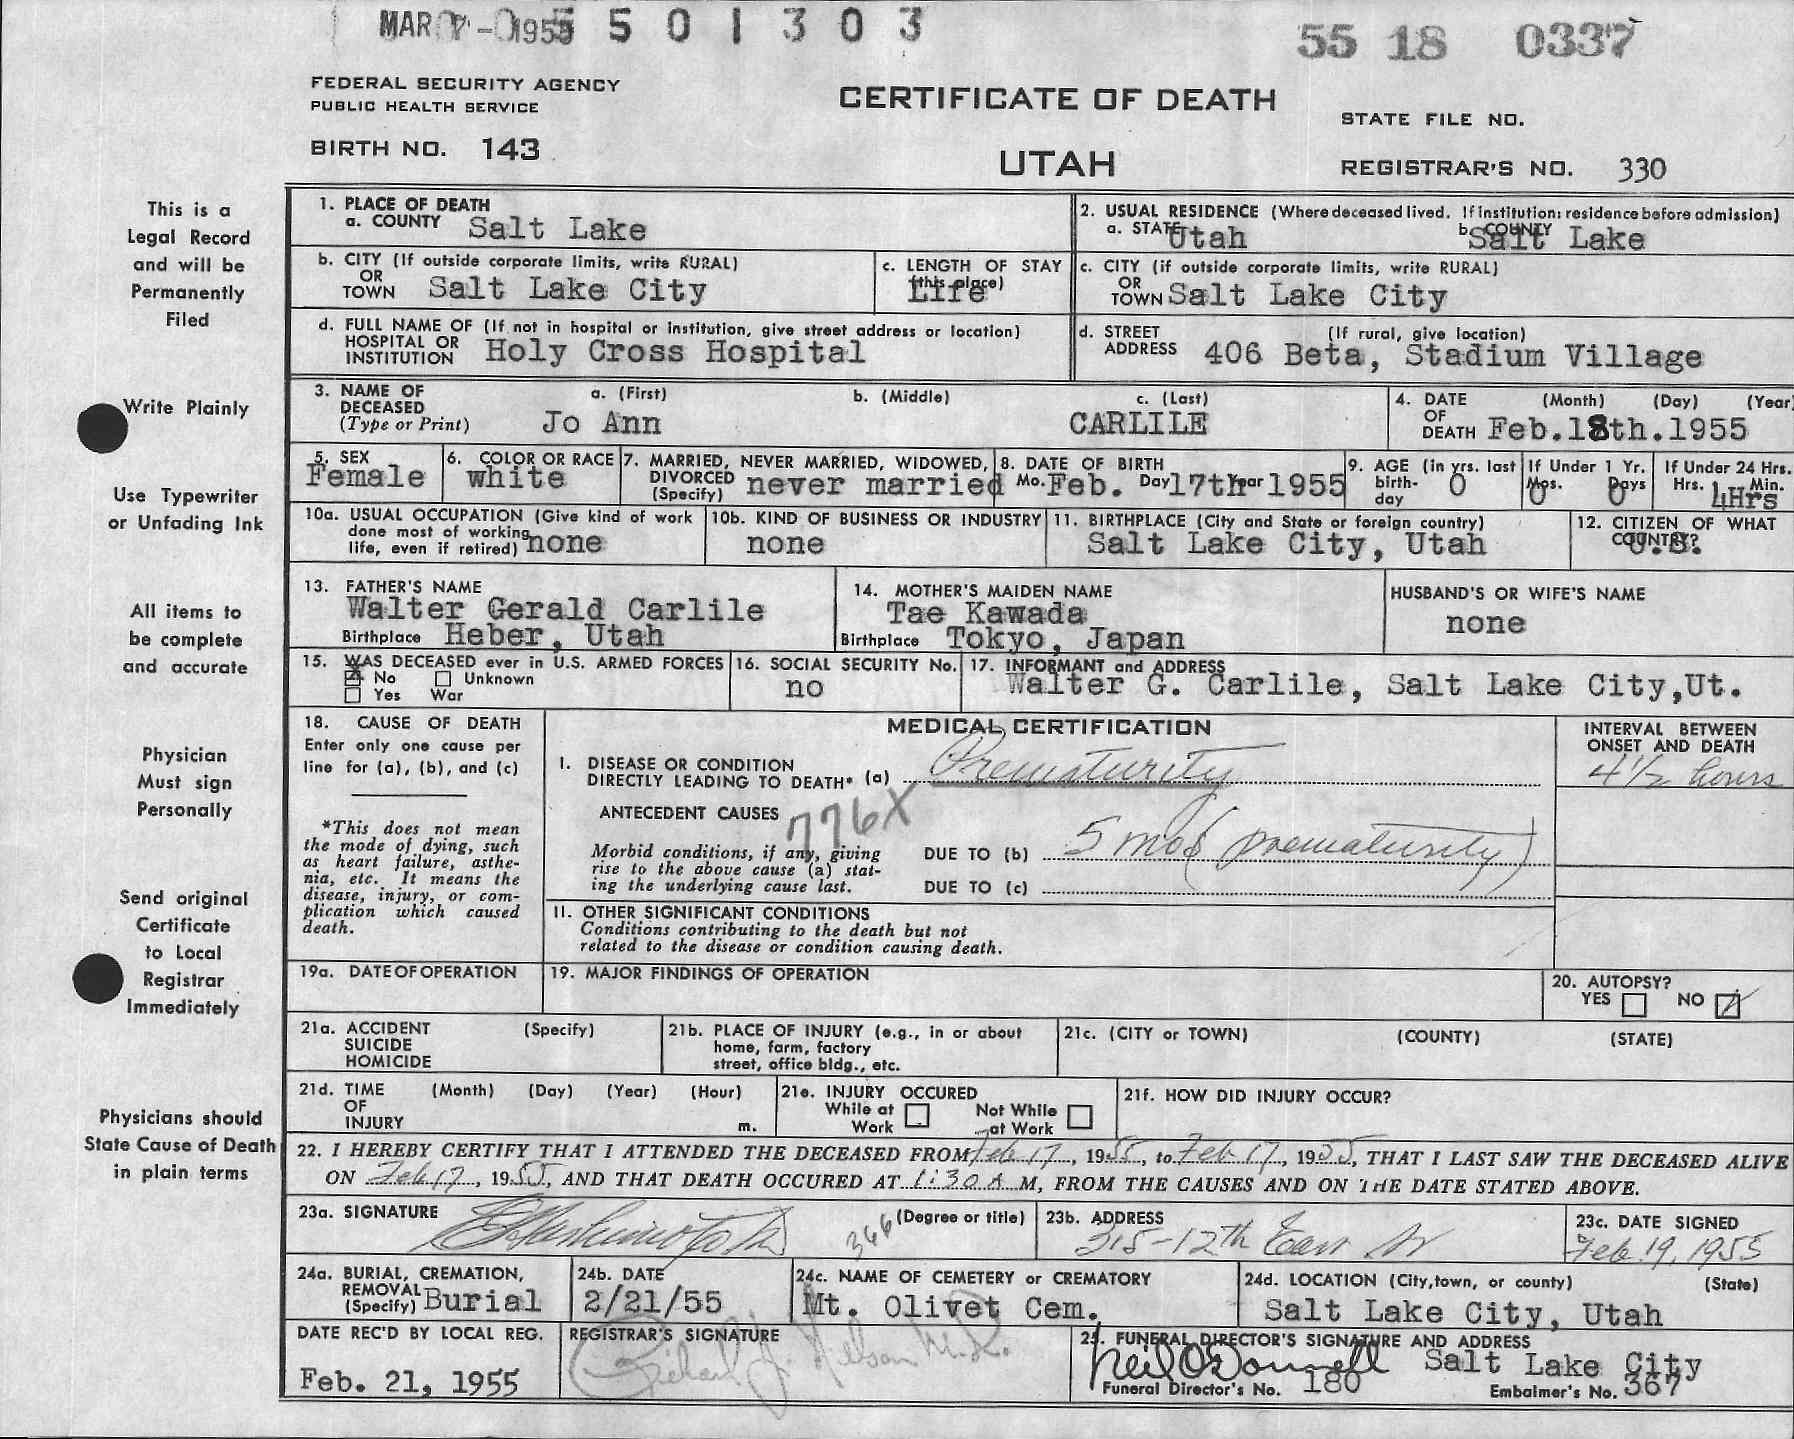 MAR 7 - 1955 5 5 0 1 3 0 3
55 18 0337
FEDERAL SECURITY AGENCY
PUBLIC HEALTH SERVICE
CERTIFICATE OF DEATH
STATE FILE NO.
BIRTH NO. 143
UTAH
REGISTRAR'S NO. 330
This is a
Legal Record
and will be
Permanently
Filed
Write Plainly
Use Typewriter
or Unfading Ink
All items to
be complete
and accurate
Physician
Must sign
Personally
Send original
Certificate
to Local
Registrar
Immediately
Physicians should
State Cause of Death
in plain terms
1. PLACE OF DEATH
a. COUNTY Salt Lake
2. USUAL RESIDENCE (Where deceased lived. If institution: residence before admission)
a. STATE Utah b. COUNTY Salt Lake
b. CITY (If outside corporate limits, write RURAL)
OR
TOWN Salt Lake City
c. LENGTH OF STAY
(this place)
Life
c. CITY (if outside corporate limits, write RURAL)
OR
TOWN Salt Lake City
d. FULL NAME OF (If not in hospital or institution, give street address or location)
HOSPITAL OR
INSTITUTION Holy Cross Hospital
d. STREET (If rural, give location)
ADDRESS 406 Beta, Stadium Village
3. NAME OF a. (First) b. (Middle) c. (Last)
DECEASED
(Type or Print) Jo Ann CARLILE
4. DATE (Month) (Day) (Year)
OF
DEATH Feb.18th.1955
5. SEX
Female
6. COLOR OR RACE
white
7. MARRIED, NEVER MARRIED, WIDOWED,
DIVORCED
(Specify) never married
8. DATE OF BIRTH
Mo. Feb. Day 17th Year 1955
9. AGE (in yrs. last
birth-
day 0
If Under 1 Yr.
Mos. 0 Days 0
If Under 24 Hrs.
Hrs. Min.
4Hrs
10a. USUAL OCCUPATION (Give kind of work
done most of working
life, even if retired) none
10b. KIND OF BUSINESS OR INDUSTRY
none
11. BIRTHPLACE (City and State or foreign country)
Salt Lake City, Utah
12. CITIZEN OF WHAT
COUNTRY?
U.S.
13. FATHER'S NAME
Walter Gerald Carlile
Birthplace Heber, Utah
14. MOTHER'S MAIDEN NAME
Tae Kawada
Birthplace Tokyo, Japan
HUSBAND'S OR WIFE'S NAME
none
15. WAS DECEASED ever in U.S. ARMED FORCES
No Unknown
Yes War
16. SOCIAL SECURITY No.
no
17. INFORMANT and ADDRESS
Walter G. Carlile, Salt Lake City,Ut.
18. CAUSE OF DEATH
Enter only one cause per
line for (a), (b), and (c)
*This does not mean
the mode of dying, such
as heart failure, asthe-
nia, etc. It means the
disease, injury, or com-
plication which caused
death.
MEDICAL CERTIFICATION
INTERVAL BETWEEN
ONSET AND DEATH
I. DISEASE OR CONDITION
DIRECTLY LEADING TO DEATH* (a) Prematurity
4½ hours
ANTECEDENT CAUSES
776X
Morbid conditions, if any, giving
rise to the above cause (a) stat-
ing the underlying cause last.
DUE TO (b) 5 mos (prematurity)
DUE TO (c)
II. OTHER SIGNIFICANT CONDITIONS
Conditions contributing to the death but not
related to the disease or condition causing death.
19a. DATE OF OPERATION
19. MAJOR FINDINGS OF OPERATION
20. AUTOPSY?
YES NO
21a. ACCIDENT (Specify)
SUICIDE
HOMICIDE
21b. PLACE OF INJURY (e.g., in or about
home, farm, factory
street, office bldg., etc.
21c. (CITY or TOWN) (COUNTY) (STATE)
21d. TIME (Month) (Day) (Year) (Hour)
OF
INJURY m.
21e. INJURY OCCURED
While at Not While
Work at Work
21f. HOW DID INJURY OCCUR?
22. I HEREBY CERTIFY THAT I ATTENDED THE DECEASED FROM Feb 17, 1955, to Feb 17, 1955, THAT I LAST SAW THE DECEASED ALIVE
ON Feb 17, 1955, AND THAT DEATH OCCURED AT 1:30 A M, FROM THE CAUSES AND ON THE DATE STATED ABOVE.
23a. SIGNATURE (Degree or title)
366
23b. ADDRESS
315-12th East St
23c. DATE SIGNED
Feb 19, 1955
24a. BURIAL, CREMATION,
REMOVAL
(Specify) Burial
24b. DATE
2/21/55
24c. NAME OF CEMETERY or CREMATORY
Mt. Olivet Cem.
24d. LOCATION (City,town, or county) (State)
Salt Lake City, Utah
DATE REC'D BY LOCAL REG.
Feb. 21, 1955
REGISTRAR'S SIGNATURE
Richard J. Nelson M.D.
25. FUNERAL DIRECTOR'S SIGNATURE AND ADDRESS
Neil O'Donnell Salt Lake City
Funeral Director's No. 180 Embalmer's No. 367